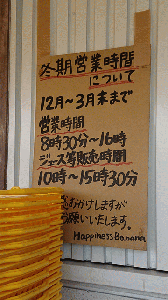 冬期営業時間
について
12月〜3月末まで
営業時間
8時30分〜16時
ジュース等販売時間
10時〜15時30分
おまかけしますが
お願いいたします。
Happiness Banana